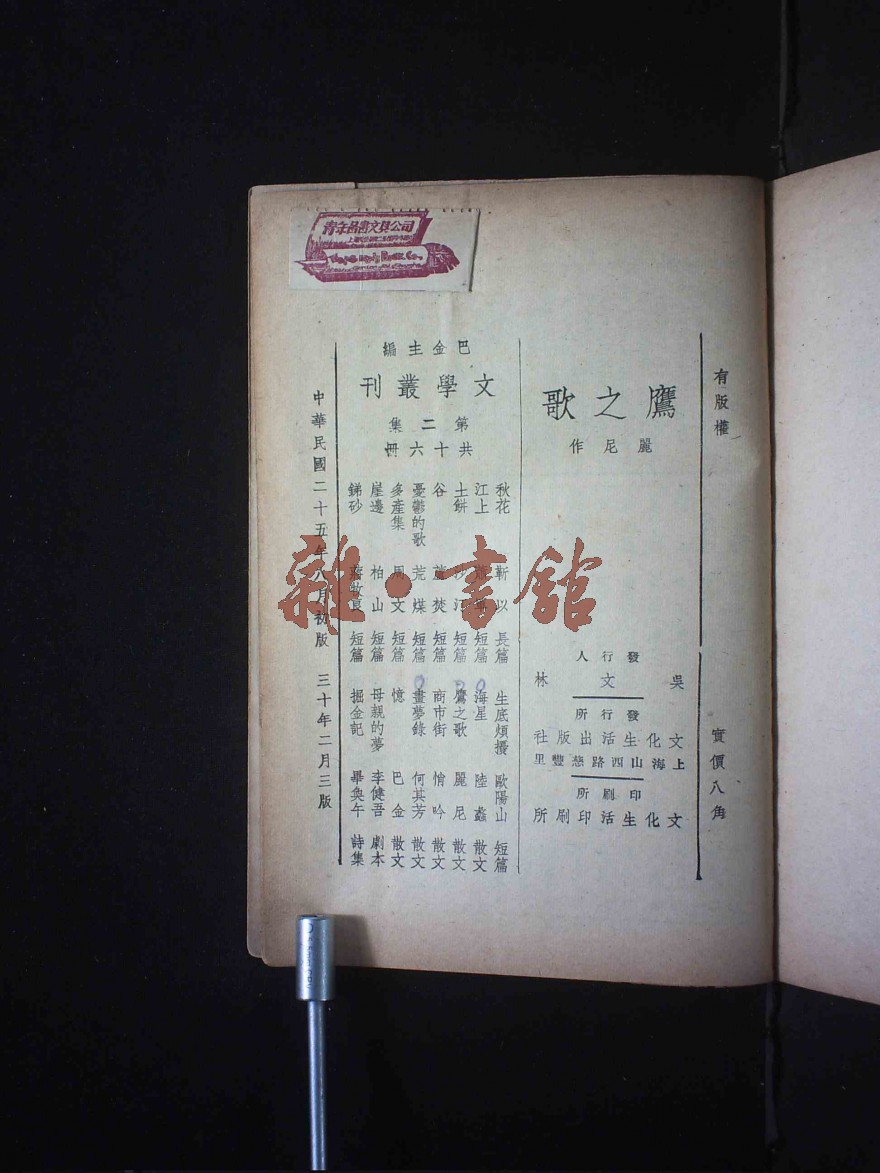 有版權
實價八角
鷹之歌
麗尼作
發行人
吳文林
發行所
文化生活出版社
上海山西路慈豐里
印刷所
文化生活印刷所
巴金主編
文學叢刊
第二集
共十六冊
秋花 靳以 長篇
江上 短篇
土餅 沙汀 短篇
谷 蘆焚 短篇
憂鬱的歌 荒煤 短篇
多產集 周文 短篇
崖邊 柏山 短篇
銻砂 蔣牧良 短篇
生底煩擾 歐陽山 短篇
海星 陸蠡 散文
鷹之歌 麗尼 散文
商市街 悄吟 散文
畫夢錄 何其芳 散文
憶 巴金 散文
母親的夢 李健吾 劇本
掘金記 畢奐午 詩集
中華民國二十五年八月初版
三十年二月三版
青年圖書文具公司
雜·書館